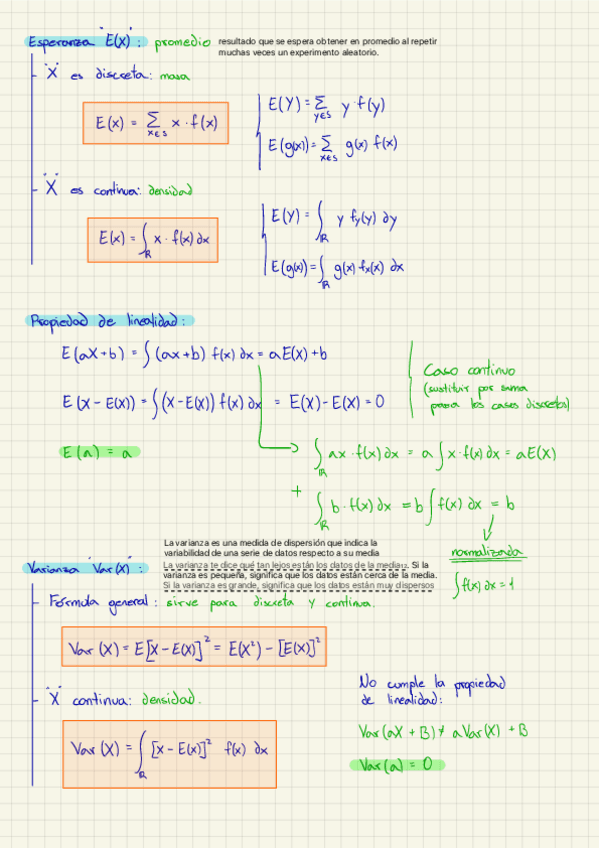 Esperanza "E(X)": promedio resultado que se espera obtener en promedio al repetir
muchas veces un experimento aleatorio.
"X" es discreta: masa
E(x) = Σ x∈S x · f(x)
E(Y) = Σ y∈S y · f(y)
E(g(x)) = Σ x∈S g(x) f(x)
"X" es continua: densidad
E(x) = ∫ℝ x · f(x) ∂x
E(Y) = ∫ℝ y fy(y) ∂y
E(g(x)) = ∫ℝ g(x) fx(x) ∂x
Propiedad de linealidad:
E(aX+b) = ∫(ax+b) f(x) ∂x = aE(X)+b
E(X - E(X)) = ∫(X-E(X)) f(x) ∂x = E(X) - E(X) = 0
Caso continuo
(sustituir por suma
para los casos discretos)
E(a) = a
∫ℝ ax · f(x) ∂x = a ∫ x · f(x) ∂x = aE(X)
+
∫ℝ b · f(x) ∂x = b ∫ f(x) ∂x = b
normalizada
∫f(x) ∂x = 1
La varianza es una medida de dispersión que indica la
variabilidad de una serie de datos respecto a su media
La varianza te dice qué tan lejos están los datos de la media. Si la
varianza es pequeña, significa que los datos están cerca de la media.
Si la varianza es grande, significa que los datos están muy dispersos
Varianza "Var(X)":
Fórmula general: sirve para discreta y continua.
Var(X) = E[X - E(X)]² = E(X²) - [E(X)]²
"X" continua: densidad.
Var(X) = ∫ℝ [x - E(X)]² f(x) ∂x
No cumple la propiedad
de linealidad:
Var(aX + B) ≠ aVar(X) + B
Var(a) = 0